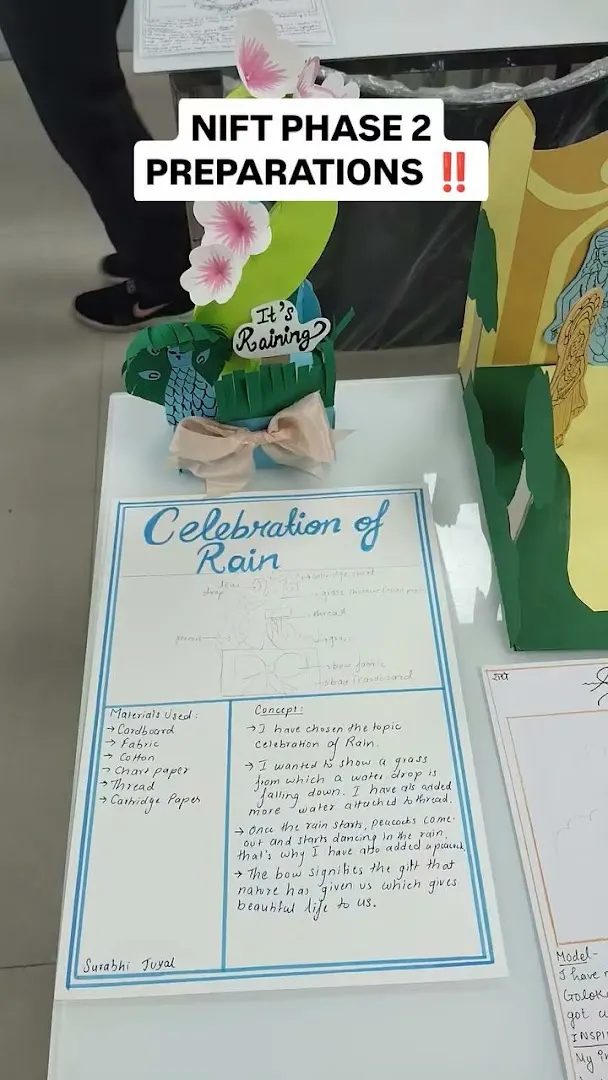 NIFT PHASE 2
PREPARATIONS ‼️
It's
Raining
Celebration of
Rain
thread
bow fabric
Materials Used:
→ Cardboard
→ Fabric
→ Cotton
→ Chart paper
→ Thread
→ Cartridge Paper
Surabhi Juyal
Concept:
→ I have chosen the topic
celebration of Rain.
→ I wanted to show a grass
from which a water drop is
falling down. I have als added
more water attached to thread.
→ Once the rain starts, peacocks come
out and starts dancing in the rain,
that's why I have also added a peacock.
→ The bow signifies the gift that
nature has given us which gives
beautiful life to us.
Model-
I have
Golok
got
INSPI
My